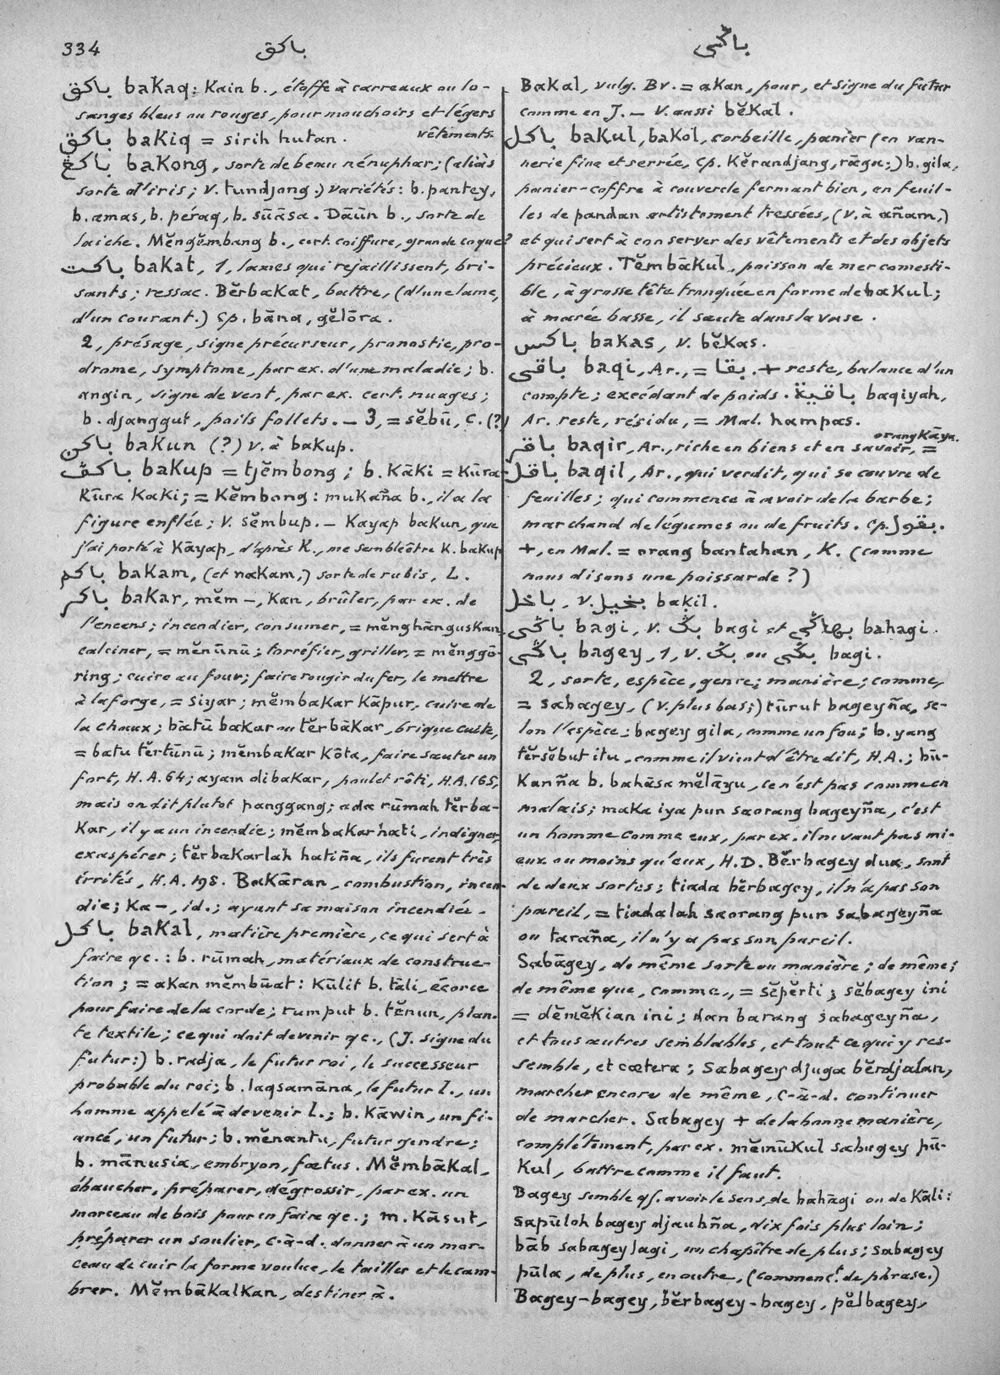 334
باكق
باڬي
باكق bakaq: Kain b., étoffe à carreaux ou lo-
sanges bleus ou rouges, pour mouchoirs et légers
vêtements.
باكق bakiq = sirih hutan.
باكڠ bakong, sorte de beau nénuphar; (aliàs
sorte d'iris; v. tundjong.) variétés: b. pantey,
b. amas, b. péraq, b. sūāsa. Dāūn b., sorte de
laîche. Mĕngĕmbang b., cert. coiffure, grande coque?
باكت bakat, 1, lames qui rejaillissent, bri-
sants; ressac. Bĕrbakat, battre, (d'une lame,
d'un courant.) Cp. bāna, gĕlōra.
2, présage, signe précurseur, pronostic, pro-
drome, symptome, par ex. d'une maladie; b.
angin, signe de vent, par ex. cert. nuages;
b. djanggut, poils follets. _ 3, = sĕbū, C. (?)
باكن bakun (?) v. à bakup.
باكڤ bakup = tjĕmbong; b. Kāki = Kūra-
Kūra Kaki; = Kĕmbong: mukaña b., il a la
figure enflée; v. sĕmbup. _ Kayap bakun, que
j'ai porté à Kāyap, d'après K., me semble être K. bakup
باكم bakam, (et nakam,) sorte de rubis, L.
باكر bakar, mĕm-, kan, brûler, par ex. de
l'encens; incendier, consumer, = mĕnghānguskan,
calciner, = mĕnūnū; torréfier, griller, = mĕnggō-
ring; cuire au four; faire rougir du fer, le mettre
à la forge, = siyar; mĕmbakar kāpur, cuire de
la chaux; bātū bakar ou tĕrbākar, brique cuite,
= batu tĕrtūnū; mĕmbakar kōta, faire sauter un
fort, H.A. 64; ayam dibakar, poulet rôti, H.A. 165,
mais on dit plutot panggang; ada rūmah tĕrba-
kar, il y a un incendie; mĕmbakar hati, indigner,
exaspérer; tĕrbakarlah hatiña, ils furent très
irrités, H.A. 198. Bakāran, combustion, incen-
die; Ka-, id.; ayant sa maison incendiée.
باكل bakal, matière première, ce qui sert à
faire qc.: b. rūmah, matériaux de construc-
tion; = akan mĕmbūat: Kūlit b. tāli, écorce
pour faire de la corde; rumput b. tĕnun, plan-
te textile; ce qui doit devenir qc., (J. signe du
futur:) b. radja, le futur roi, le successeur
probable du roi; b. laqsamāna, le futur l., un
homme appelé à devenir l.; b. Kāwin, un fi-
ancé, un futur; b. mĕnantu, futur gendre;
b. mānusia, embryon, fœtus. Mĕmbākal,
ébaucher, préparer, dégrossir, par ex. un
morceau de bois pour en faire qc.; m. Kāsut,
préparer un soulier, c.-à-d. donner à un mor-
ceau de cuir la forme voulue, le tailler et le cam-
brer. Mĕmbākalkan, destiner à.
Bakal, vulg. Bv. = akan, pour, et signe du futur
comme en J. _ V. aussi bĕkal.
باكل bakul, bakol, corbeille, panier (en van-
nerie fine et serrée, Cp. Kĕrandjang, rāga;) b. gila,
panier-coffre à couvercle fermant bien, en feuil-
les de pandan artistement tressées, (v. à añam,)
et qui sert à conserver des vêtements et des objets
précieux. Tĕmbākul, poisson de mer comesti-
ble, à grosse tête tronquée en forme de bakul;
à marée basse, il saute dans la vase.
باكس bakas, v. bĕkas.
باقي baqi, Ar., = بقا. + reste, balance d'un
compte; excédant de poids. باقية baqiyah,
Ar. reste, résidu, = Mal. hampas.
orang Kāya.
باقر baqir, Ar., riche en biens et en savoir, =
باقل baqil, Ar., qui verdit, qui se couvre de
feuilles; qui commence à avoir de la barbe;
marchand de légumes ou de fruits. Cp. بقول.
+, en Mal. = orang bantahan, K. (comme
nous disons une poissarde?)
باخل, v. بخيل bakil.
باڬي bagi, v. بڬ bagi et بهاڬي bahagi.
باڬي bagey, 1, v. بڬ ou بڬي bagi.
2, sorte, espèce, genre; manière; comme,
= sabagey, (v. plus bas;) tūrut bageyña, se-
lon l'espèce; bagey gila, comme un fou; b. yang
tĕrsĕbut itu, comme il vient d'être dit, H.A.; bū-
kanña b. bahāsa mĕlāyu, ce n'est pas comme en
malais; maka iya pun saorang bageyña, c'est
un homme comme eux, par ex. il ne vaut pas mi-
eux ou moins qu'eux, H.D. Bĕrbagey dua, sont
de deux sortes; tiada bĕrbagey, il n'a pas son
pareil, = tiadalah saorang pun sabageyña
ou taraña, il n'y a pas son pareil.
Sabāgey, de même sorte ou manière; de même;
de même que, comme, = sĕpĕrti; sĕbagey ini
= dĕmĕkian ini; dan barang sabageyña,
et tous autres semblables, et tout ce qui y res-
semble, et cætera; sabagey djuga bĕrdjalan,
marcher encore de même, c-à-d. continuer
de marcher. Sabagey + de la bonne manière,
complétement, par ex. mĕmūkul sabagey pū-
kul, battre comme il faut.
Bagey semble qf. avoir le sens de bahāgi ou de Kāli:
sapūloh bagey djauhña, dix fois plus loin;
bāb sabagey lagi, un chapître de plus; sabagey
pūla, de plus, en outre, (commenct. de phrase.)
Bagey-bagey, bĕrbagey-bagey, pĕlbagey,